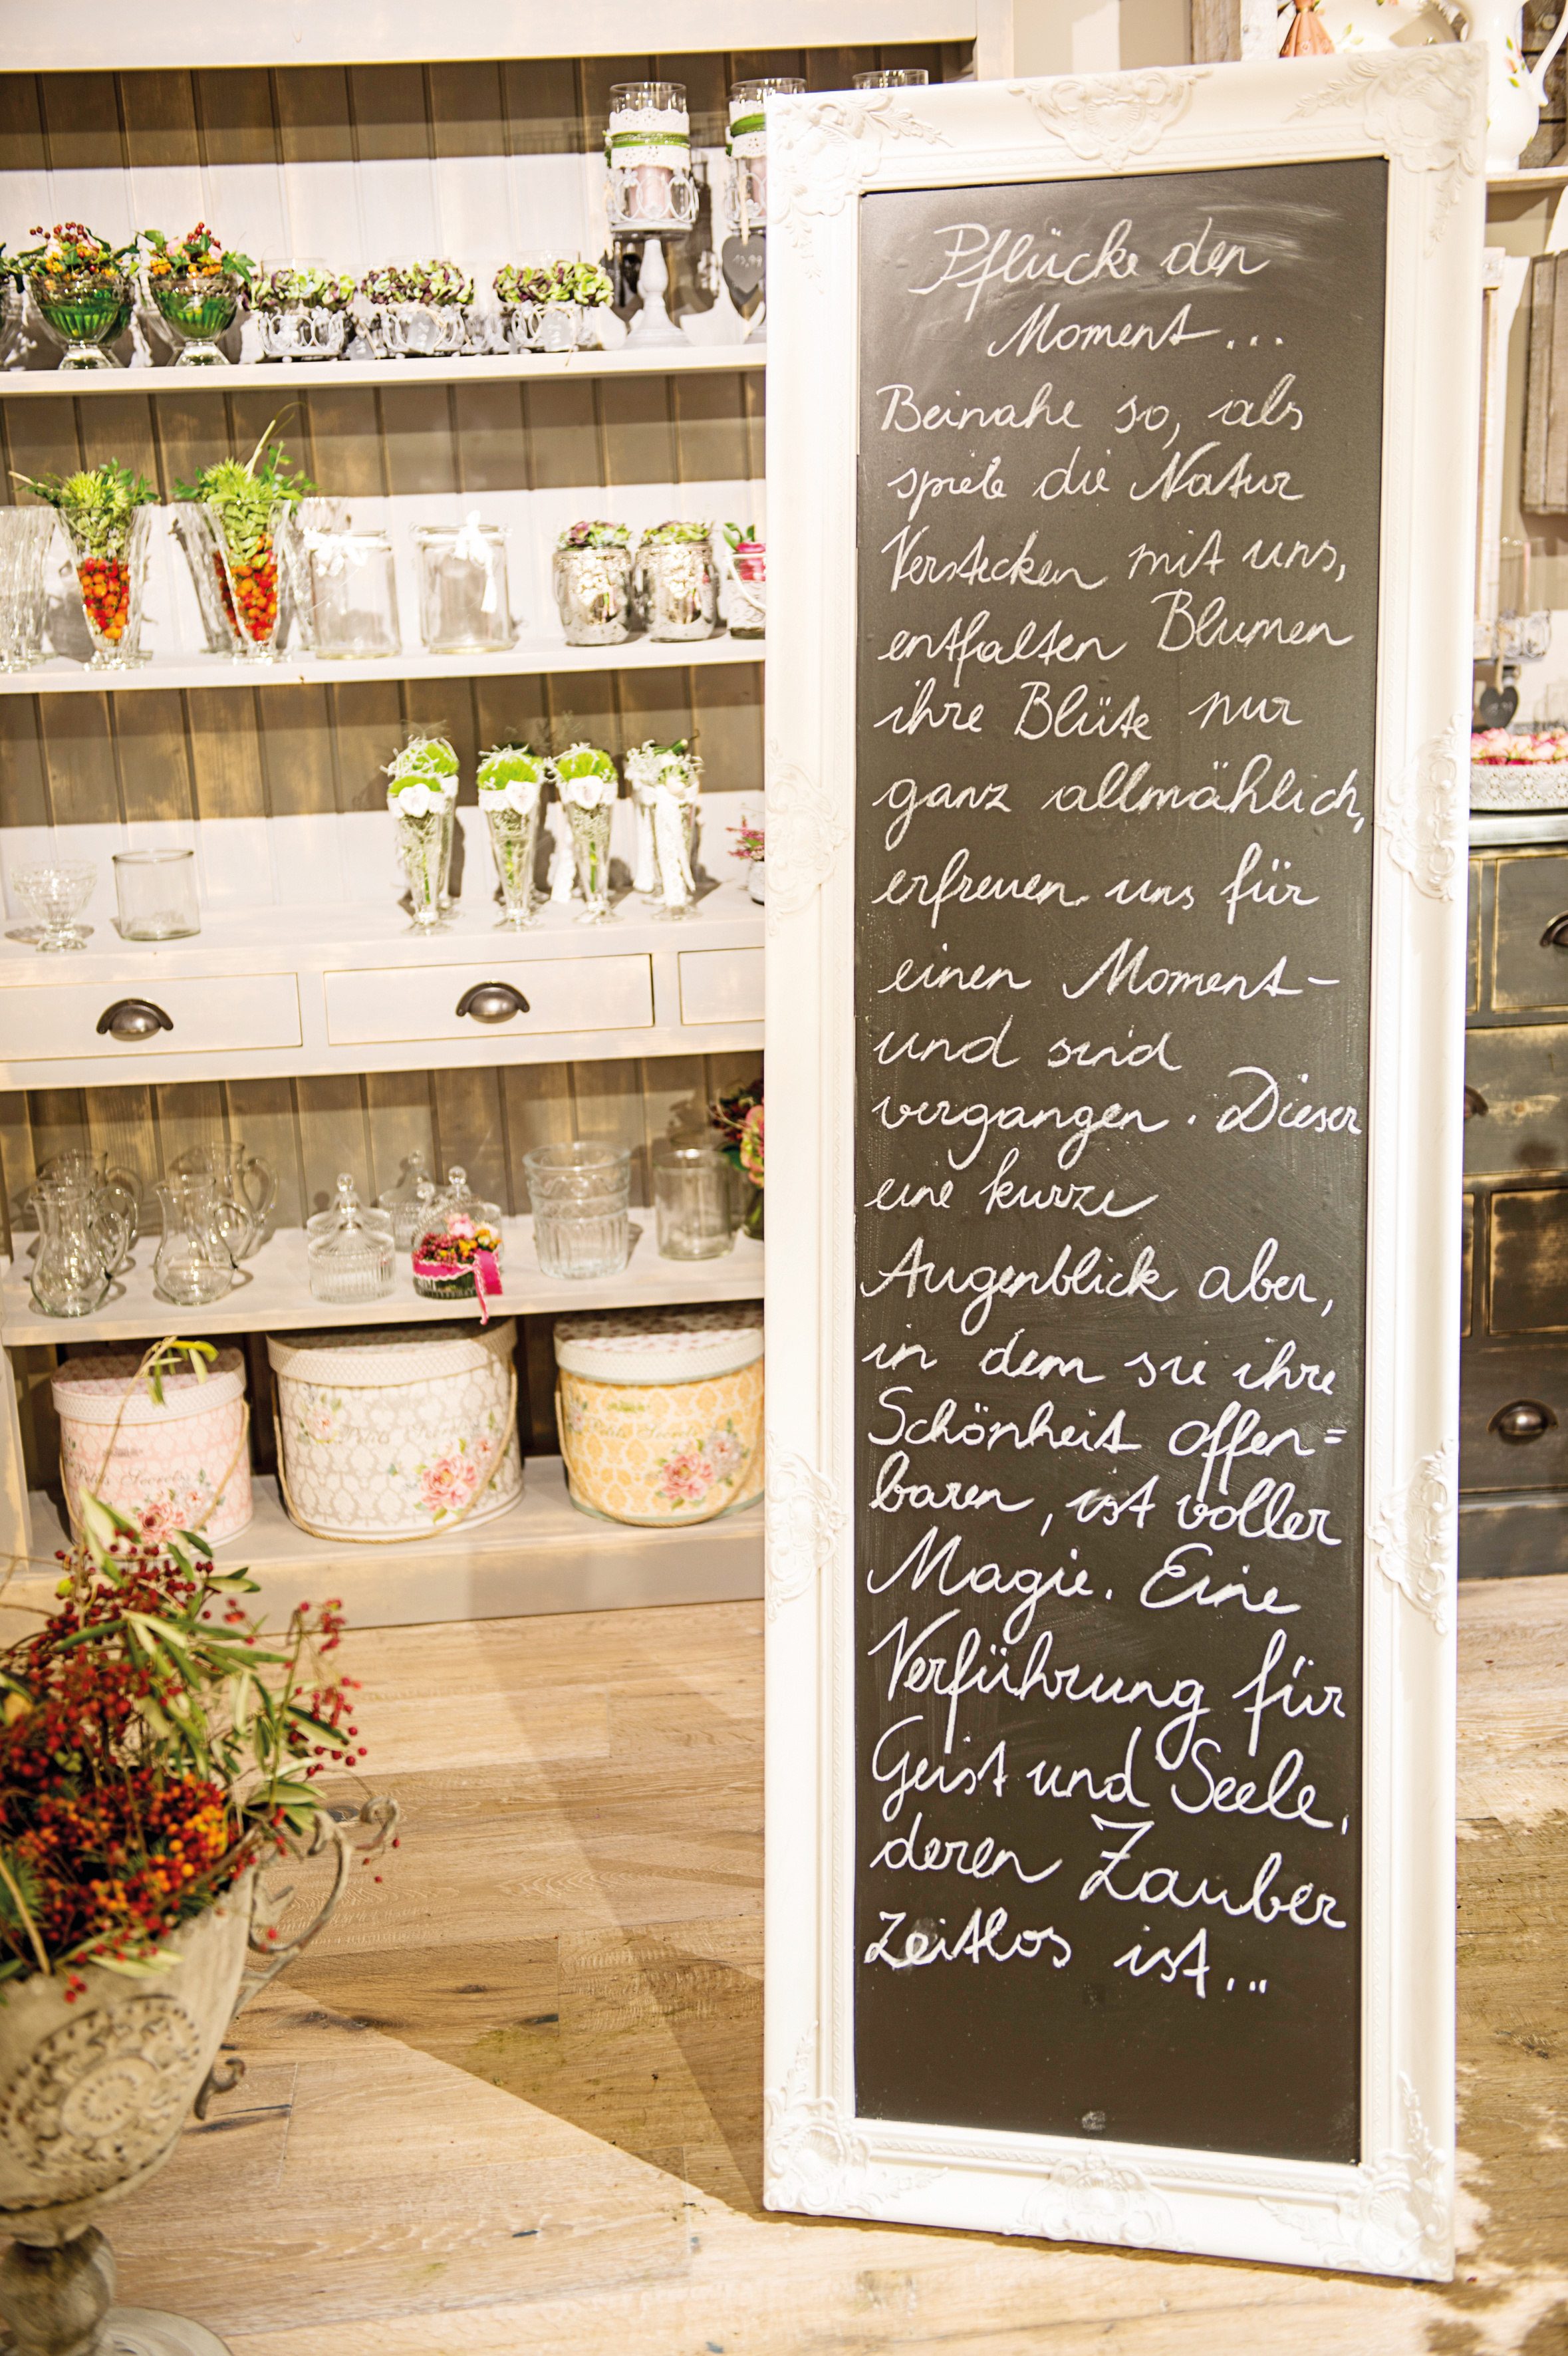 Pflücke den
Moment...
Beinahe so, als
spiele die Natur
Verstecken mit uns,
entfalten Blumen
ihre Blüte nur
ganz allmählich,
erfreuen uns für
einen Moment-
und sind
vergangen. Dieser
eine kurze
Augenblick aber,
in dem sie ihre
Schönheit offen=
baren, ist voller
Magie. Eine
Verführung für
Geist und Seele,
deren Zauber
Zeitlos ist...
Petits Secrets
Petits Secrets